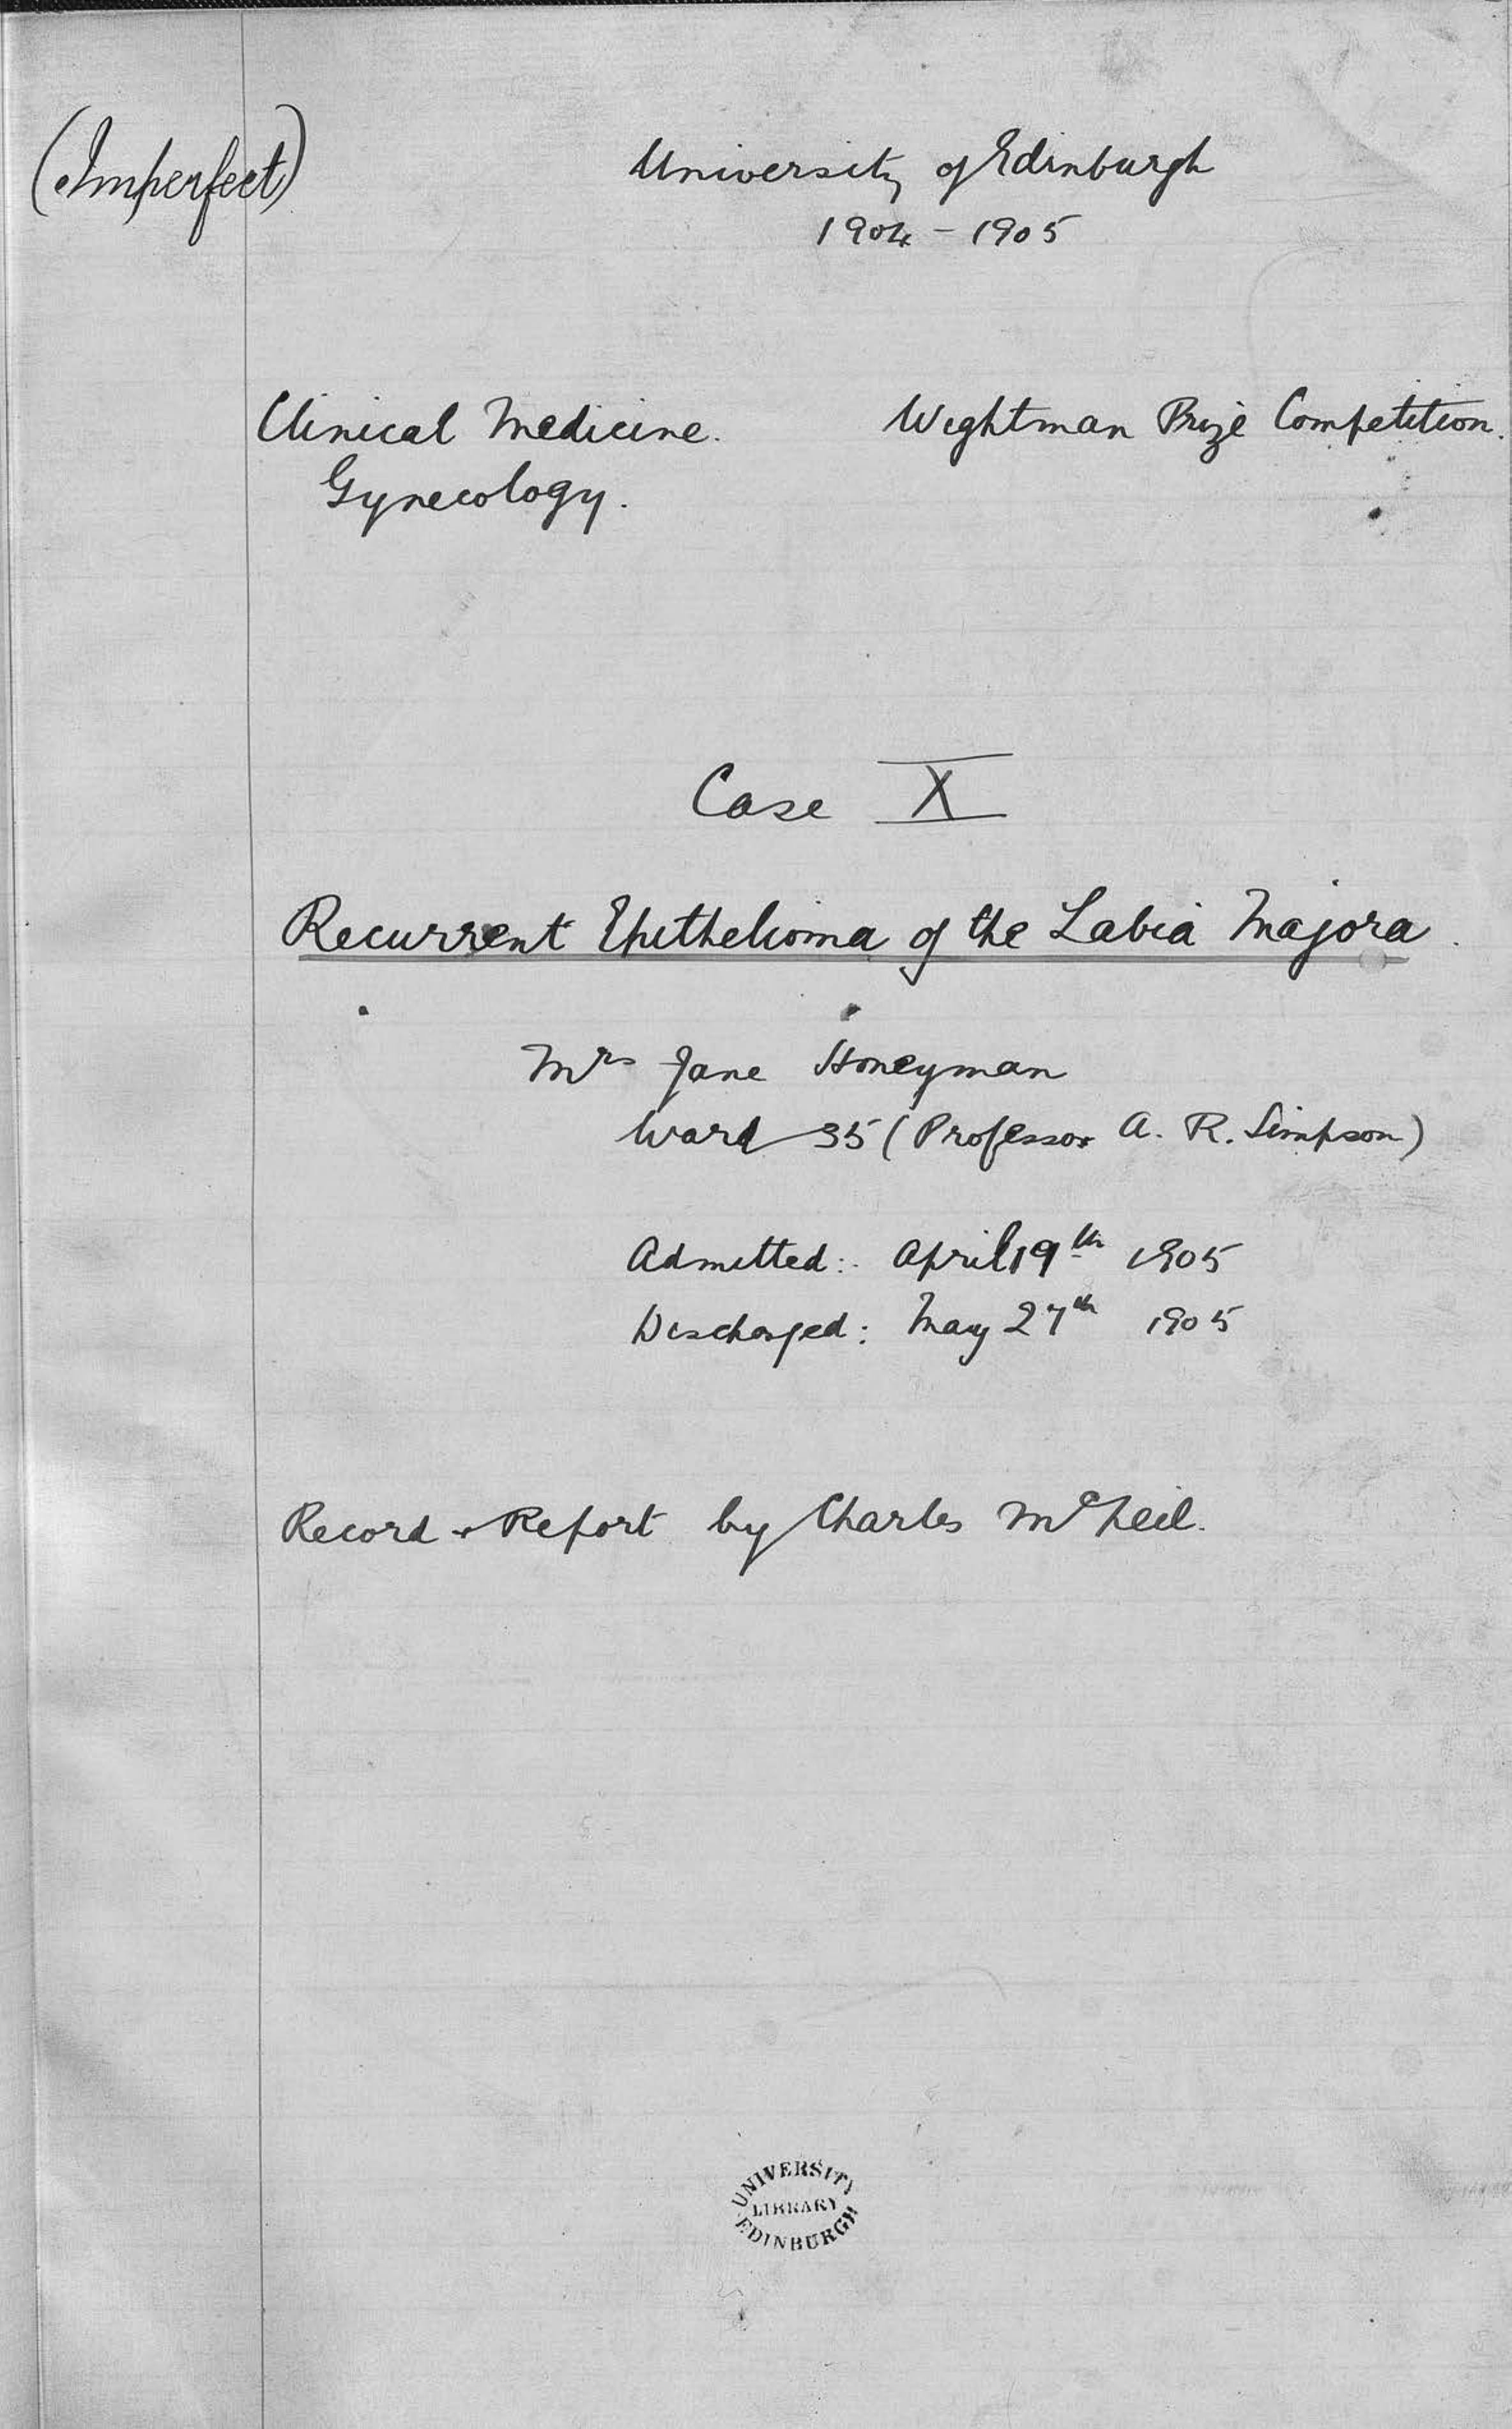 (Imperfect)
University of Edinburgh
1904 - 1905
Clinical Medicine.
Wightman Prize Competition.
Gynecology.
Case X
Recurrent Epithelioma of the Labia Majora.
Mrs Jane Honeyman
Ward 35 (Professor A. R. Simpson)
Admitted: April 19th 1905
Discharged: May 27th 1905
Record + Report by Charles McNeil.
UNIVERSITY
LIBRARY
EDINBURGH